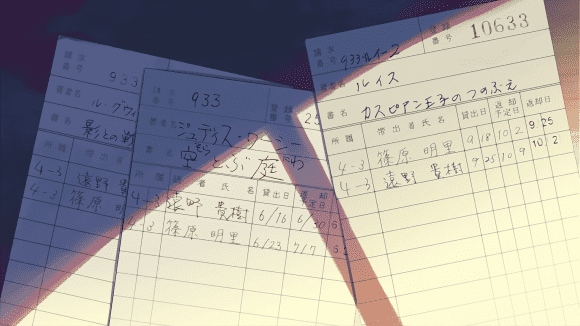 請求番号 933
著者名 ル・グウィ
書名 影との戦
所属 帯出者
4-3 遠野 貴
4-3 篠原
933
ジュディス・ワーシー
書名 空とぶ庭
所属 者氏名 貸出日 返却予定日
4-3 遠野 貴樹 6/16 6/30
4-3 篠原 明里 6/23 7/7
請求番号 933-ルイ-2 登録番号 10633
著者名 ルイス
書名 カスピアン王子のつのぶえ
所属 帯出者氏名 貸出日 返却予定日 返却日
4-3 篠原 明里 9 18 10 2 9 25
4-3 遠野 貴樹 9 25 10 9 10 2